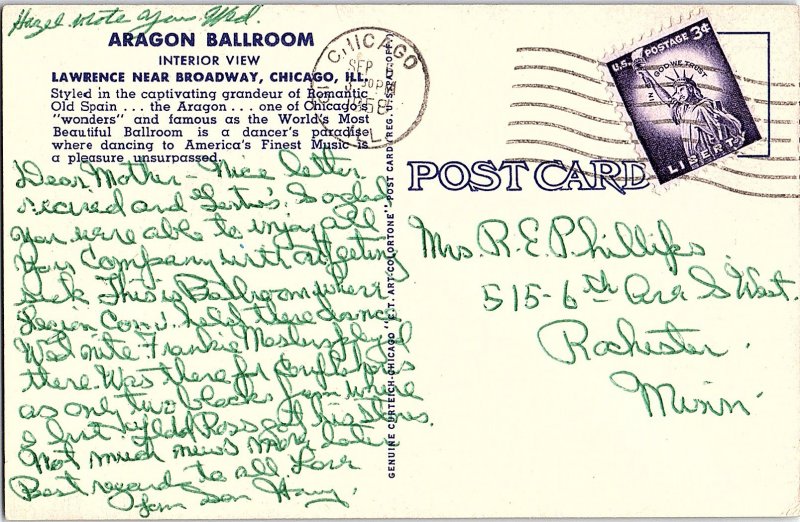 Hazel wrote you Wed.
ARAGON BALLROOM
INTERIOR VIEW
LAWRENCE NEAR BROADWAY, CHICAGO, ILL.
Styled in the captivating grandeur of Romantic
Old Spain . . . the Aragon . . . one of Chicago's
"wonders" and famous as the World's Most
Beautiful Ballroom is a dancer's paradise
where dancing to America's Finest Music is
a pleasure unsurpassed.
Dear Mother - Nice letter
recived and So glad
you were able to injoy all
your Company with out getting
sick This is Ballroom where
Legion Conv. held there dance
Wed nite Frankie Masters played
there. Was there for
as only two blocks from where
I Ross at his
Not much news more later
Best regards to all Love
Son Harry.
GENUINE CURTEICH-CHICAGO "C.T. ART-COLORTONE" POST CARD (REG. U.S. PAT. OFF.)
CHICAGO
SEP
30 PM
1958
ILL.
U.S. POSTAGE 3¢
IN GOD WE TRUST
LIBERTY
POST CARD
Mrs. R. E. Phillips
515 - 6th Ave S West.
Rochester.
Minn.